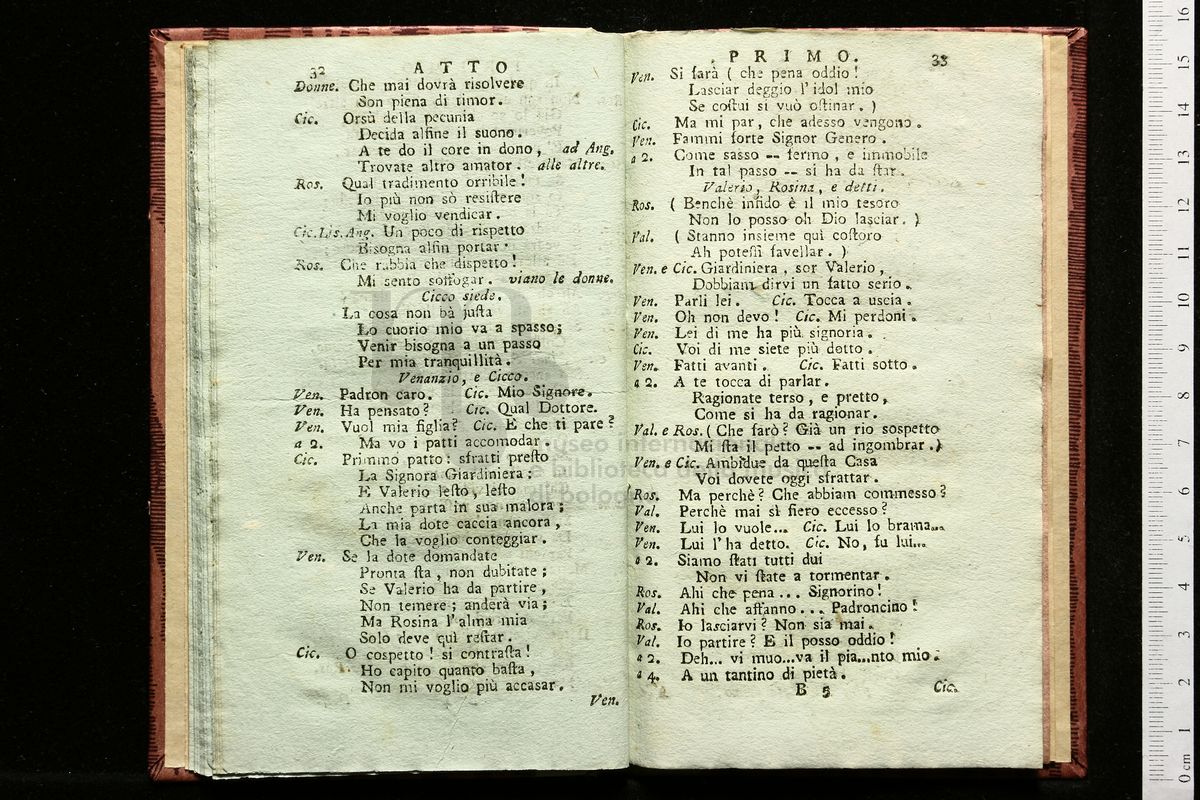 32
ATTO
Donne. Che mai dovrà risolvere
Son piena di timor.
Cic. Orsù della pecunia
Decida alfine il suono.
A te do il core in dono, ad Ang.
Trovate altro amator. alle altre.
Ros. Qual tradimento orribile!
Io più non sò resiſtere
Mi voglio vendicar.
Cic. Lis. Ang. Un poco di rispetto
Bisogna alfin portar.
Ros. Che rabbia che dispetto!
Mi sento soffogar. viano le donne.
Cicco siede.
La cosa non bà juſta
Lo cuorio mio va a spasso;
Venir bisogna a un passo
Per mia tranquillità.
Venanzio, e Cicco.
Ven. Padron caro. Cic. Mio Signore.
Ven. Ha pensato? Cic. Qual Dottore.
Ven. Vuol mia figlia? Cic. E che ti pare?
a 2. Ma vo i patti accomodar.
Cic. Primmo patto: sfratti preſto
La Signora Giardiniera;
E Valerio leſto, leſto
Anche parta in sua malora;
La mia dote caccia ancora,
Che la voglio conteggiar.
Ven. Se la dote domandate
Pronta ſta, non dubitate;
Se Valerio ha da partire,
Non temere; anderà via;
Ma Rosina l'alma mia
Solo deve quì reſtar.
Cic. O cospetto! si contraſta!
Ho capito quanto baſta,
Non mi voglio più accasar.
Ven.
PRIMO.
33
Ven. Si farà (che pena oddio!
Lasciar deggio l'idol mio
Se coſtui si vuò oſtinar.)
Cic. Ma mi par, che adesso vengono.
Ven. Fammi forte Signor Genero.
a 2. Come sasso -- fermo, e immobile
In tal passo -- si ha da ſtar.
Valerio, Rosina, e detti.
Ros. (Benchè infido è il mio tesoro
Non lo posso oh Dio lasciar.)
Val. (Stanno insieme quì coſtoro
Ah poteſſi favellar.)
Ven. e Cic. Giardiniera, sor Valerio,
Dobbiam dirvi un fatto serio.
Ven. Parli lei. Cic. Tocca a uscia.
Ven. Oh non devo! Cic. Mi perdoni.
Ven. Lei di me ha più signoria.
Cic. Voi di me siete più dotto.
Ven. Fatti avanti. Cic. Fatti sotto.
a 2. A te tocca di parlar.
Ragionate terso, e pretto,
Come si ha da ragionar.
Val. e Ros. (Che farò? Già un rio sospetto
Mi ſta il petto -- ad ingombrar.)
Ven. e Cic. Ambidue da queſta Casa
Voi dovete oggi sfrattar.
Ros. Ma perchè? Che abbiam commesso?
Val. Perchè mai sì fiero eccesso?
Ven. Lui lo vuole... Cic. Lui lo brama...
Ven. Lui l'ha detto. Cic. No, fu lui...
a 2. Siamo ſtati tutti dui
Non vi ſtate a tormentar.
Ros. Ahi che pena... Signorino!
Val. Ahi che affanno... Padroncino!
Ros. Io lasciarvi? Non sia mai.
Val. Io partire? E il posso oddio!
a 2. Deh... vi muo...va il pia...nto mio.
a 4. A un tantino di pietà.
B 5
Cic.
museo internazionale
e biblioteca della musica
di bologna
0 cm 1 2 3 4 5 6 7 8 9 10 11 12 13 14 15 16